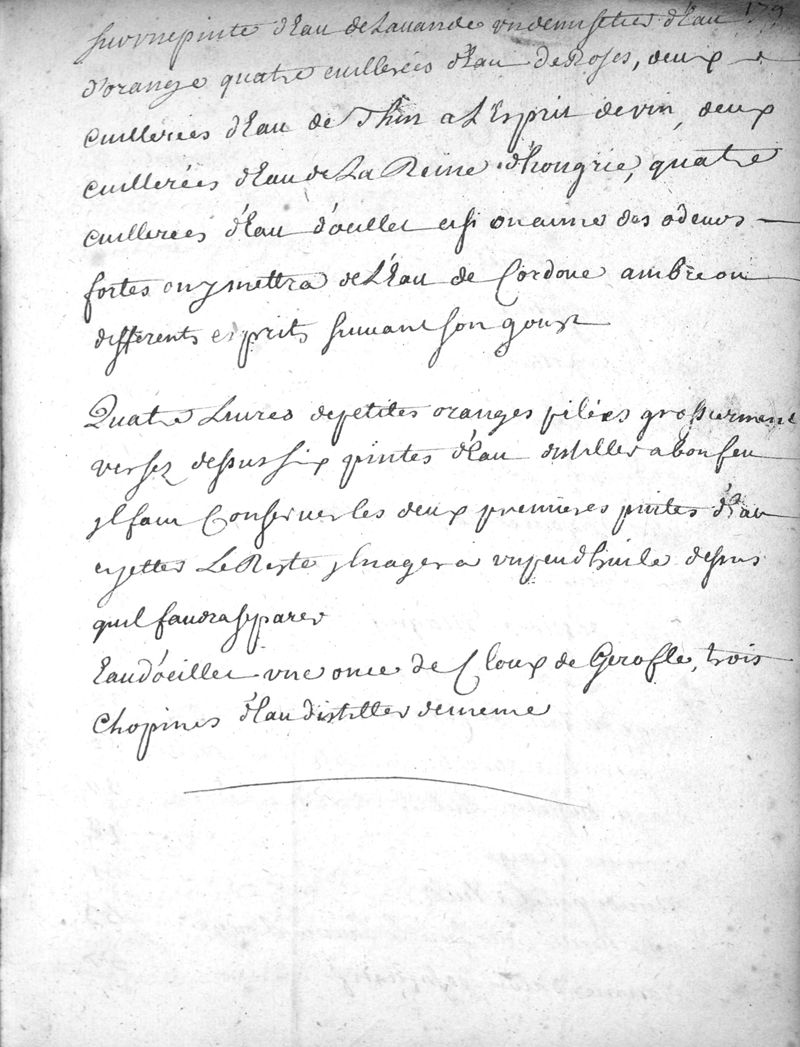 179
sur vne pinte d'Eau de Lauande vn demi setier d'Eau
d'orange quatre cuillerées d'Eau de Roses, deux
cuillerées d'Eau de Thin a L'Esprit de vin, deux
cuillerées d'Eau de La Reine d'hongrie, quatre
cuillerées d'Eau d'oeillet et si on aime des odeurs
fortes on y mettra de L'Eau de Cordoue ambrée ou
differents esprits suivant son goust
Quatre Liures de petites oranges pilées grossierment
versez dessus six pintes d'Eau distiller a bon feu
jl faut Conserver les deux premieres pintes d'Eau
et jetter Le Reste jl nagera un peu d'huile dessus
qu'il faudra separer
Eau d'oeillet vne once de Cloux de Gerofle, trois
Chopines d'Eau distiller de meme